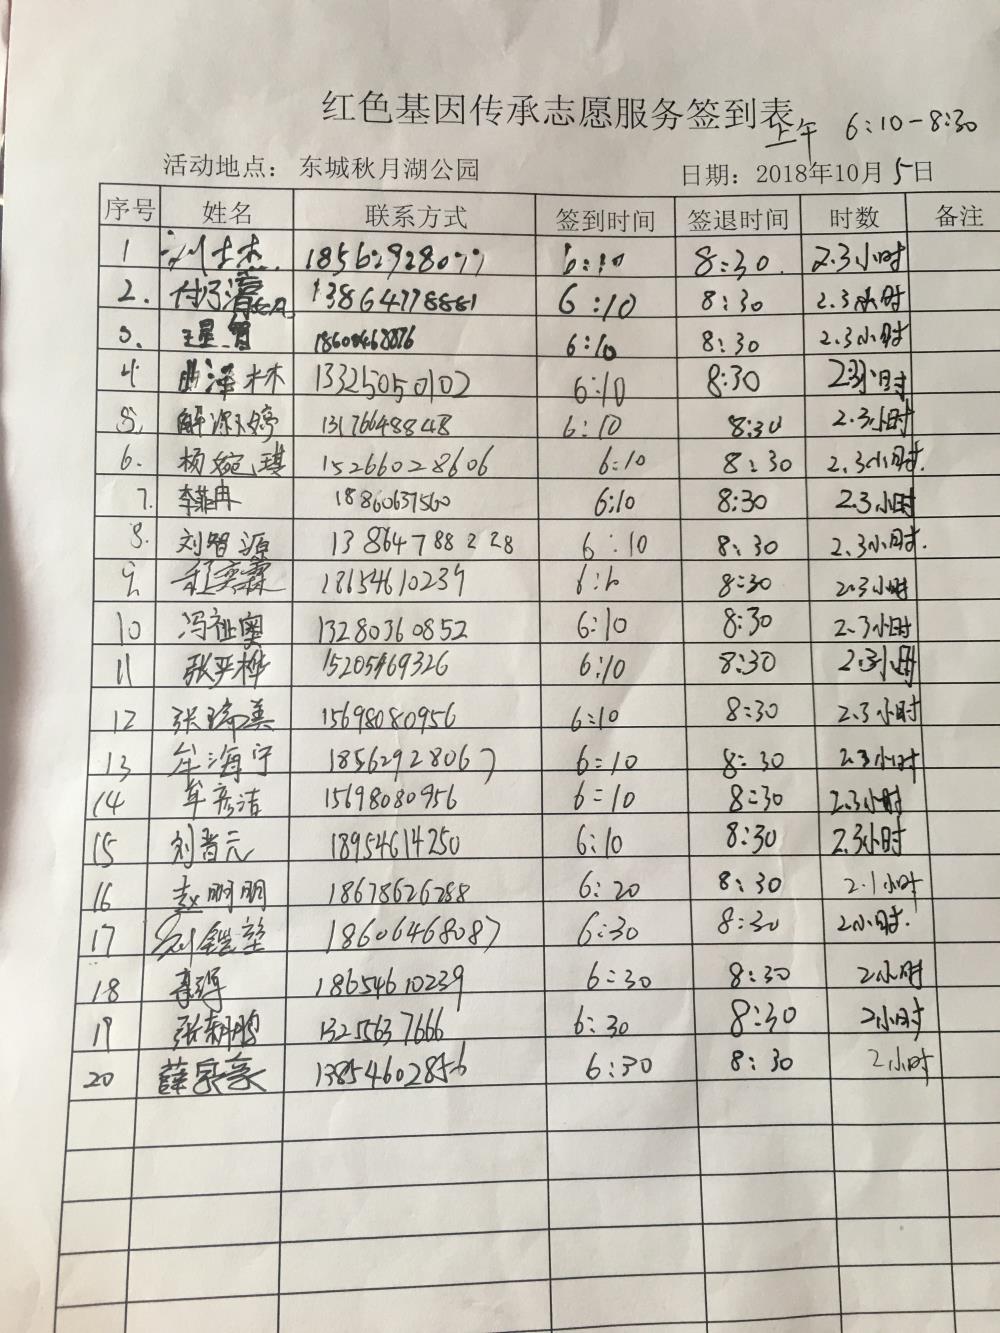 红色基因传承志愿服务签到表
上午 6:10-8:30
活动地点：东城秋月湖公园 日期：2018年10月5日
序号 姓名 联系方式 签到时间 签退时间 时数 备注
1 6:10 8:30 2.3小时
2. 13864778881 6:10 8:30 2.3小时
3. 6:10 8:30 2.3小时
4 曲泽林 13325050102 6:10 8:30 2.3小时
5. 解源婷 13176648848 6:10 8:30 2.3小时
6. 杨婉琪 15266028606 6:10 8:30 2.3小时.
7. 李菲冉 18860637560 6:10 8:30 2.3小时
8. 刘智源 13864788228 6:10 8:30 2.3小时.
9. 程奕霖 18654610239 8:30 2.3小时
10 冯祉奥 13280360852 6:10 8:30 2.3小时
11 15205469326 6:10 8:30 2.3小时
12 张瑞美 15698080956 6:10 8:30 2.3小时
13 牟海宁 18562928067 6=10 8:30 2.3小时
14 牟彦洁 15698080956 6=10 8:30 2.3小时
15 18954614250 6:10 8:30 2.3小时
16 赵明明 18678626288 6:20 8:30 2.1小时
17 18606468087 6:30 8:30 2小时.
18 18654610239 6:30 8:30 2小时
19 13255637666 6:30 8:30 2小时
20 薛家豪 13854602856 6:30 8:30 2小时